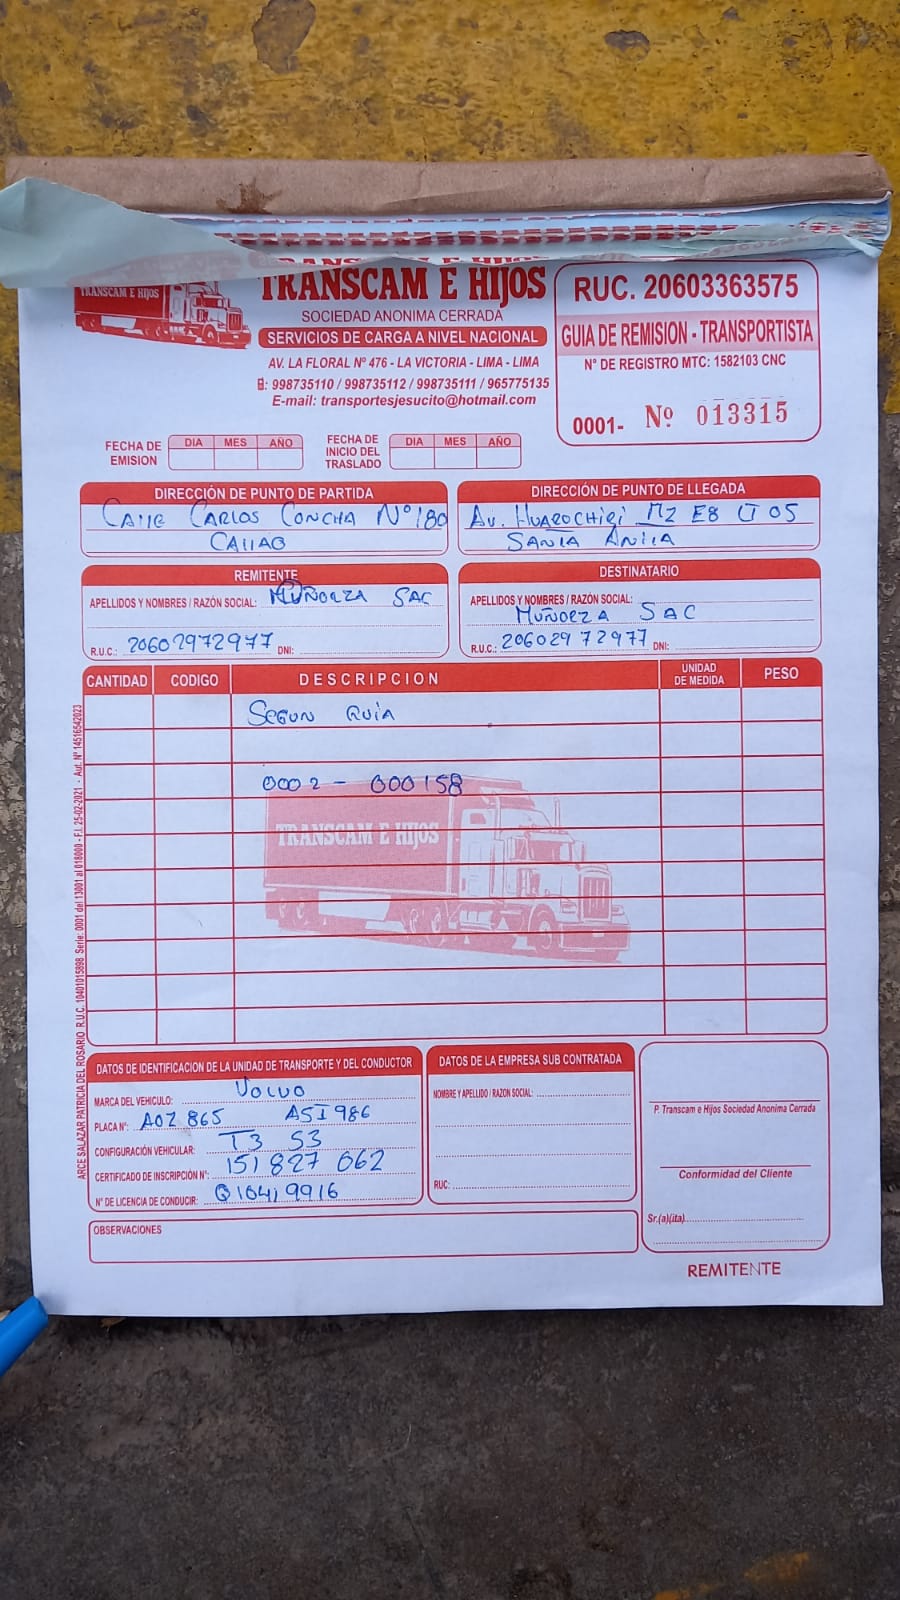 TRANSCAM E HIJOS
TRANSCAM E HIJOS
SOCIEDAD ANONIMA CERRADA
SERVICIOS DE CARGA A NIVEL NACIONAL
AV. LA FLORAL Nº 476 - LA VICTORIA - LIMA - LIMA
: 998735110 / 998735112 / 998735111 / 965775135
E-mail: transportesjesucito@hotmail.com
RUC. 20603363575
GUIA DE REMISION - TRANSPORTISTA
N° DE REGISTRO MTC: 1582103 CNC
0001- Nº 013315
FECHA DE EMISION
DIA MES AÑO
FECHA DE INICIO DEL TRASLADO
DIA MES AÑO
DIRECCIÓN DE PUNTO DE PARTIDA
CAllE CARLOS CONCHA Nº 180
CAllAO
DIRECCIÓN DE PUNTO DE LLEGADA
AV. HUAROCHIRÍ MZ E8 LT 05
SANTA ANITA
REMITENTE
APELLIDOS Y NOMBRES / RAZÓN SOCIAL: MUÑORZA SAC
R.U.C.: 20602972977 DNI:
DESTINATARIO
APELLIDOS Y NOMBRES / RAZÓN SOCIAL:
MUÑORZA SAC
R.U.C.: 20602972977 DNI:
CANTIDAD CODIGO DESCRIPCION UNIDAD DE MEDIDA PESO
SEGUN GUÍA
0002 - 000158
TRANSCAM E HIJOS
ARCE SALAZAR PATRICIA DEL ROSARIO R.U.C. 10401015898 Serie: 0001 del 13001 al 018000 - F.I. 25-02-2021 - Aut. Nº 14516542023
DATOS DE IDENTIFICACION DE LA UNIDAD DE TRANSPORTE Y DEL CONDUCTOR
MARCA DEL VEHICULO: VOLVO
PLACA Nº: AOZ 865 ASI 986
CONFIGURACIÓN VEHICULAR: T3 S3
CERTIFICADO DE INSCRIPCIÓN Nº: 151 827 062
N° DE LICENCIA DE CONDUCIR: Q10419916
DATOS DE LA EMPRESA SUB CONTRATADA
NOMBRE Y APELLIDO / RAZON SOCIAL:
RUC:
P. Transcam e Hijos Sociedad Anonima Cerrada
Conformidad del Cliente
Sr.(a)(ita)
OBSERVACIONES
REMITENTE